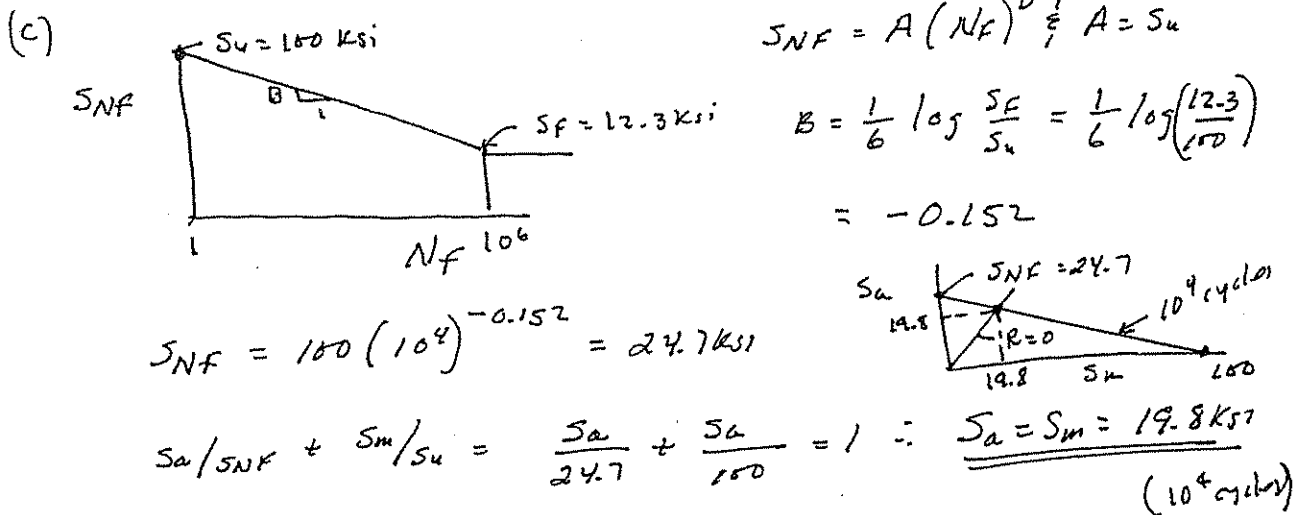 (c)
Su = 100 ksi
SNF
B
1
SF = 12.3 ksi
1
NF 10⁶
SNF = A (NF)ᴮ & A = Su
B = 1/6 log SF/Su = 1/6 log(12.3/100)
= -0.152
SNF = 100 (10⁴)^-0.152 = 24.7 ksi
Sa
SNF = 24.7
10⁴ cycles
19.8
R=0
19.8
Sm
100
Sa/SNF + Sm/Su = Sa/24.7 + Sa/100 = 1 ∴ Sa = Sm = 19.8 ksi
(10⁴ cycles)